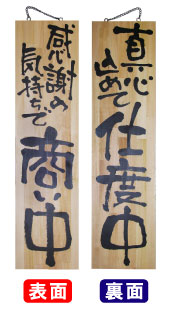 感謝の
気持ちで
商い中
真心
込めて
仕度中
表面
裏面